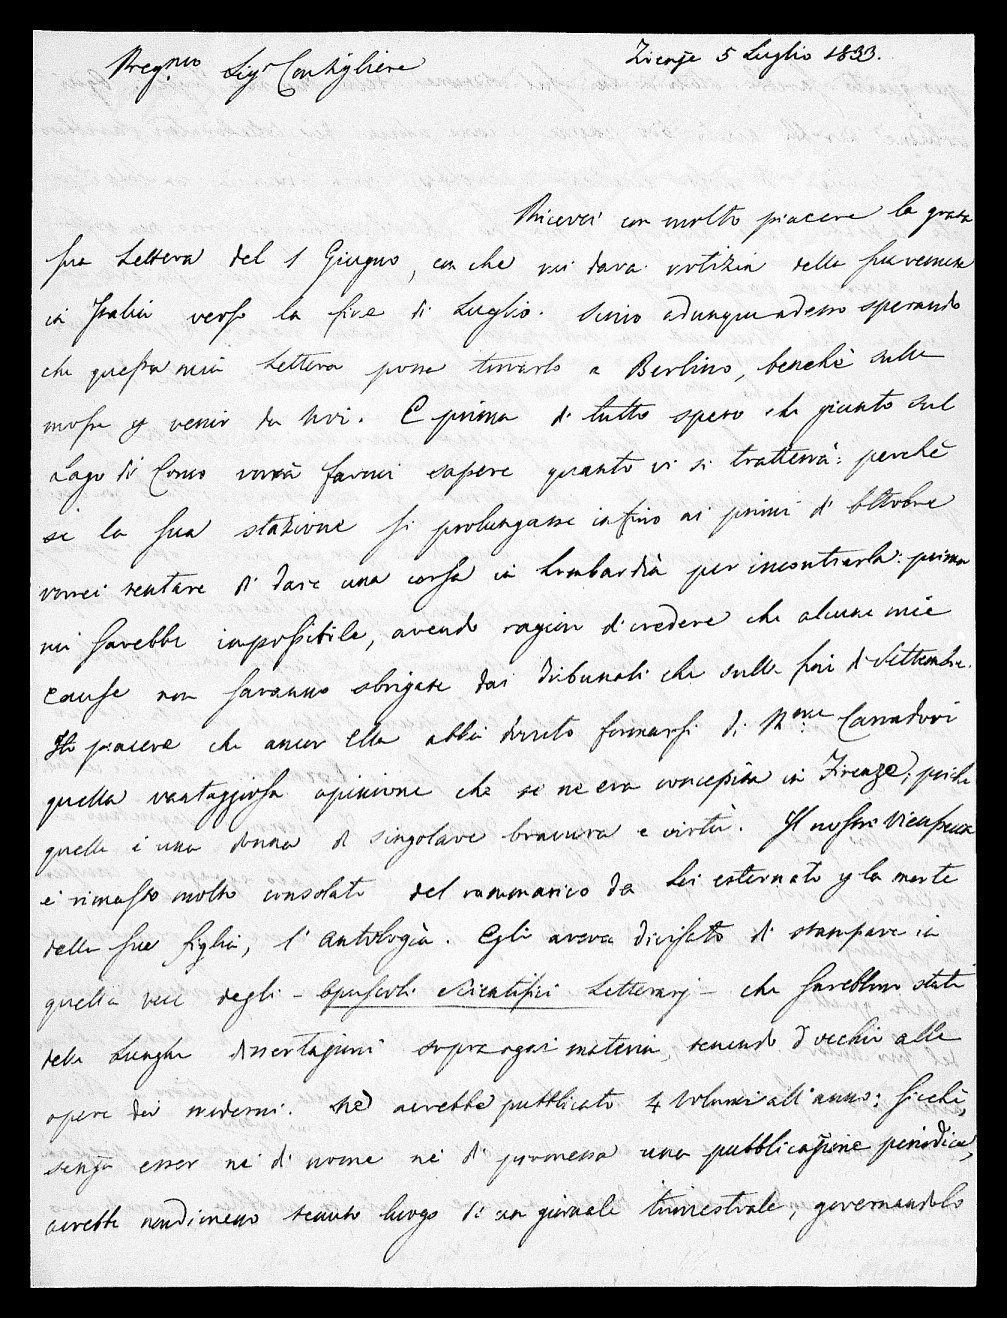 Preg.mo Sigr Consigliere
Firenze 5 Luglio 1833.
Ricevei con molto piacere la grata
sua Lettera del 1 Giugno, con che mi dava notizia della sua venuta
in Italia verso la fine di Luglio. Scrivo adunque adesso sperando
che questa mia Lettera possa trovarlo a Berlino, benchè sulle
mosse p venir da Noi. E prima di tutto spero che giunto sul
Lago di Como vorrà farmi sapere quanto vi si tratterrà: perchè
se la sua stazione si prolungasse infino ai primi di Ottobre
vorrei tentare di dare una corsa in Lombardia per incontrarla: prima
mi sarebbe impossibile, avendo ragion di credere che alcune mie
cause non saranno sbrigate dai Tribunali che sulla fine di Settembre.
Ho piacere che ancor Ella abbia dovuto formarsi di Mme Carradori
quella vantaggiosa opinione che se ne era concepita in Firenze; poichè
quella è una donna di singolare bravura e virtù. Il nostro Vieusseux
è rimasto molto consolato del rammarico da Lei esternato p la morte
della sua figlia, l'Antologia. Egli aveva divisato di stampare in
quella vece degli - Opuscoli scientifici Letterarj - che sarebbero stati
delle Lunghe dissertazioni sopra ogni materia tenendo d'occhio alle
opere dei moderni. Ne avrebbe pubblicato 4 Volumi all'anno: sicchè,
senza esser nè di nome nè di promessa una pubblicazione periodica,
avrebbe nondimeno tenuto luogo di un giornale trimestrale, governandolo